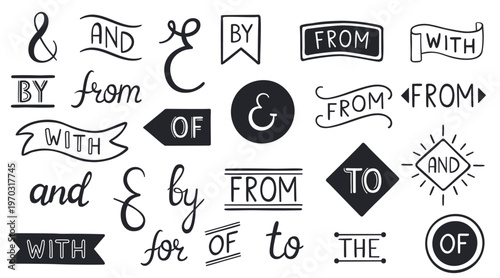 & AND & BY FROM WITH
BY from & FROM FROM
WITH OF
and & by FROM TO AND
WITH for OF to THE OF
Adobe Stock | #1970317745